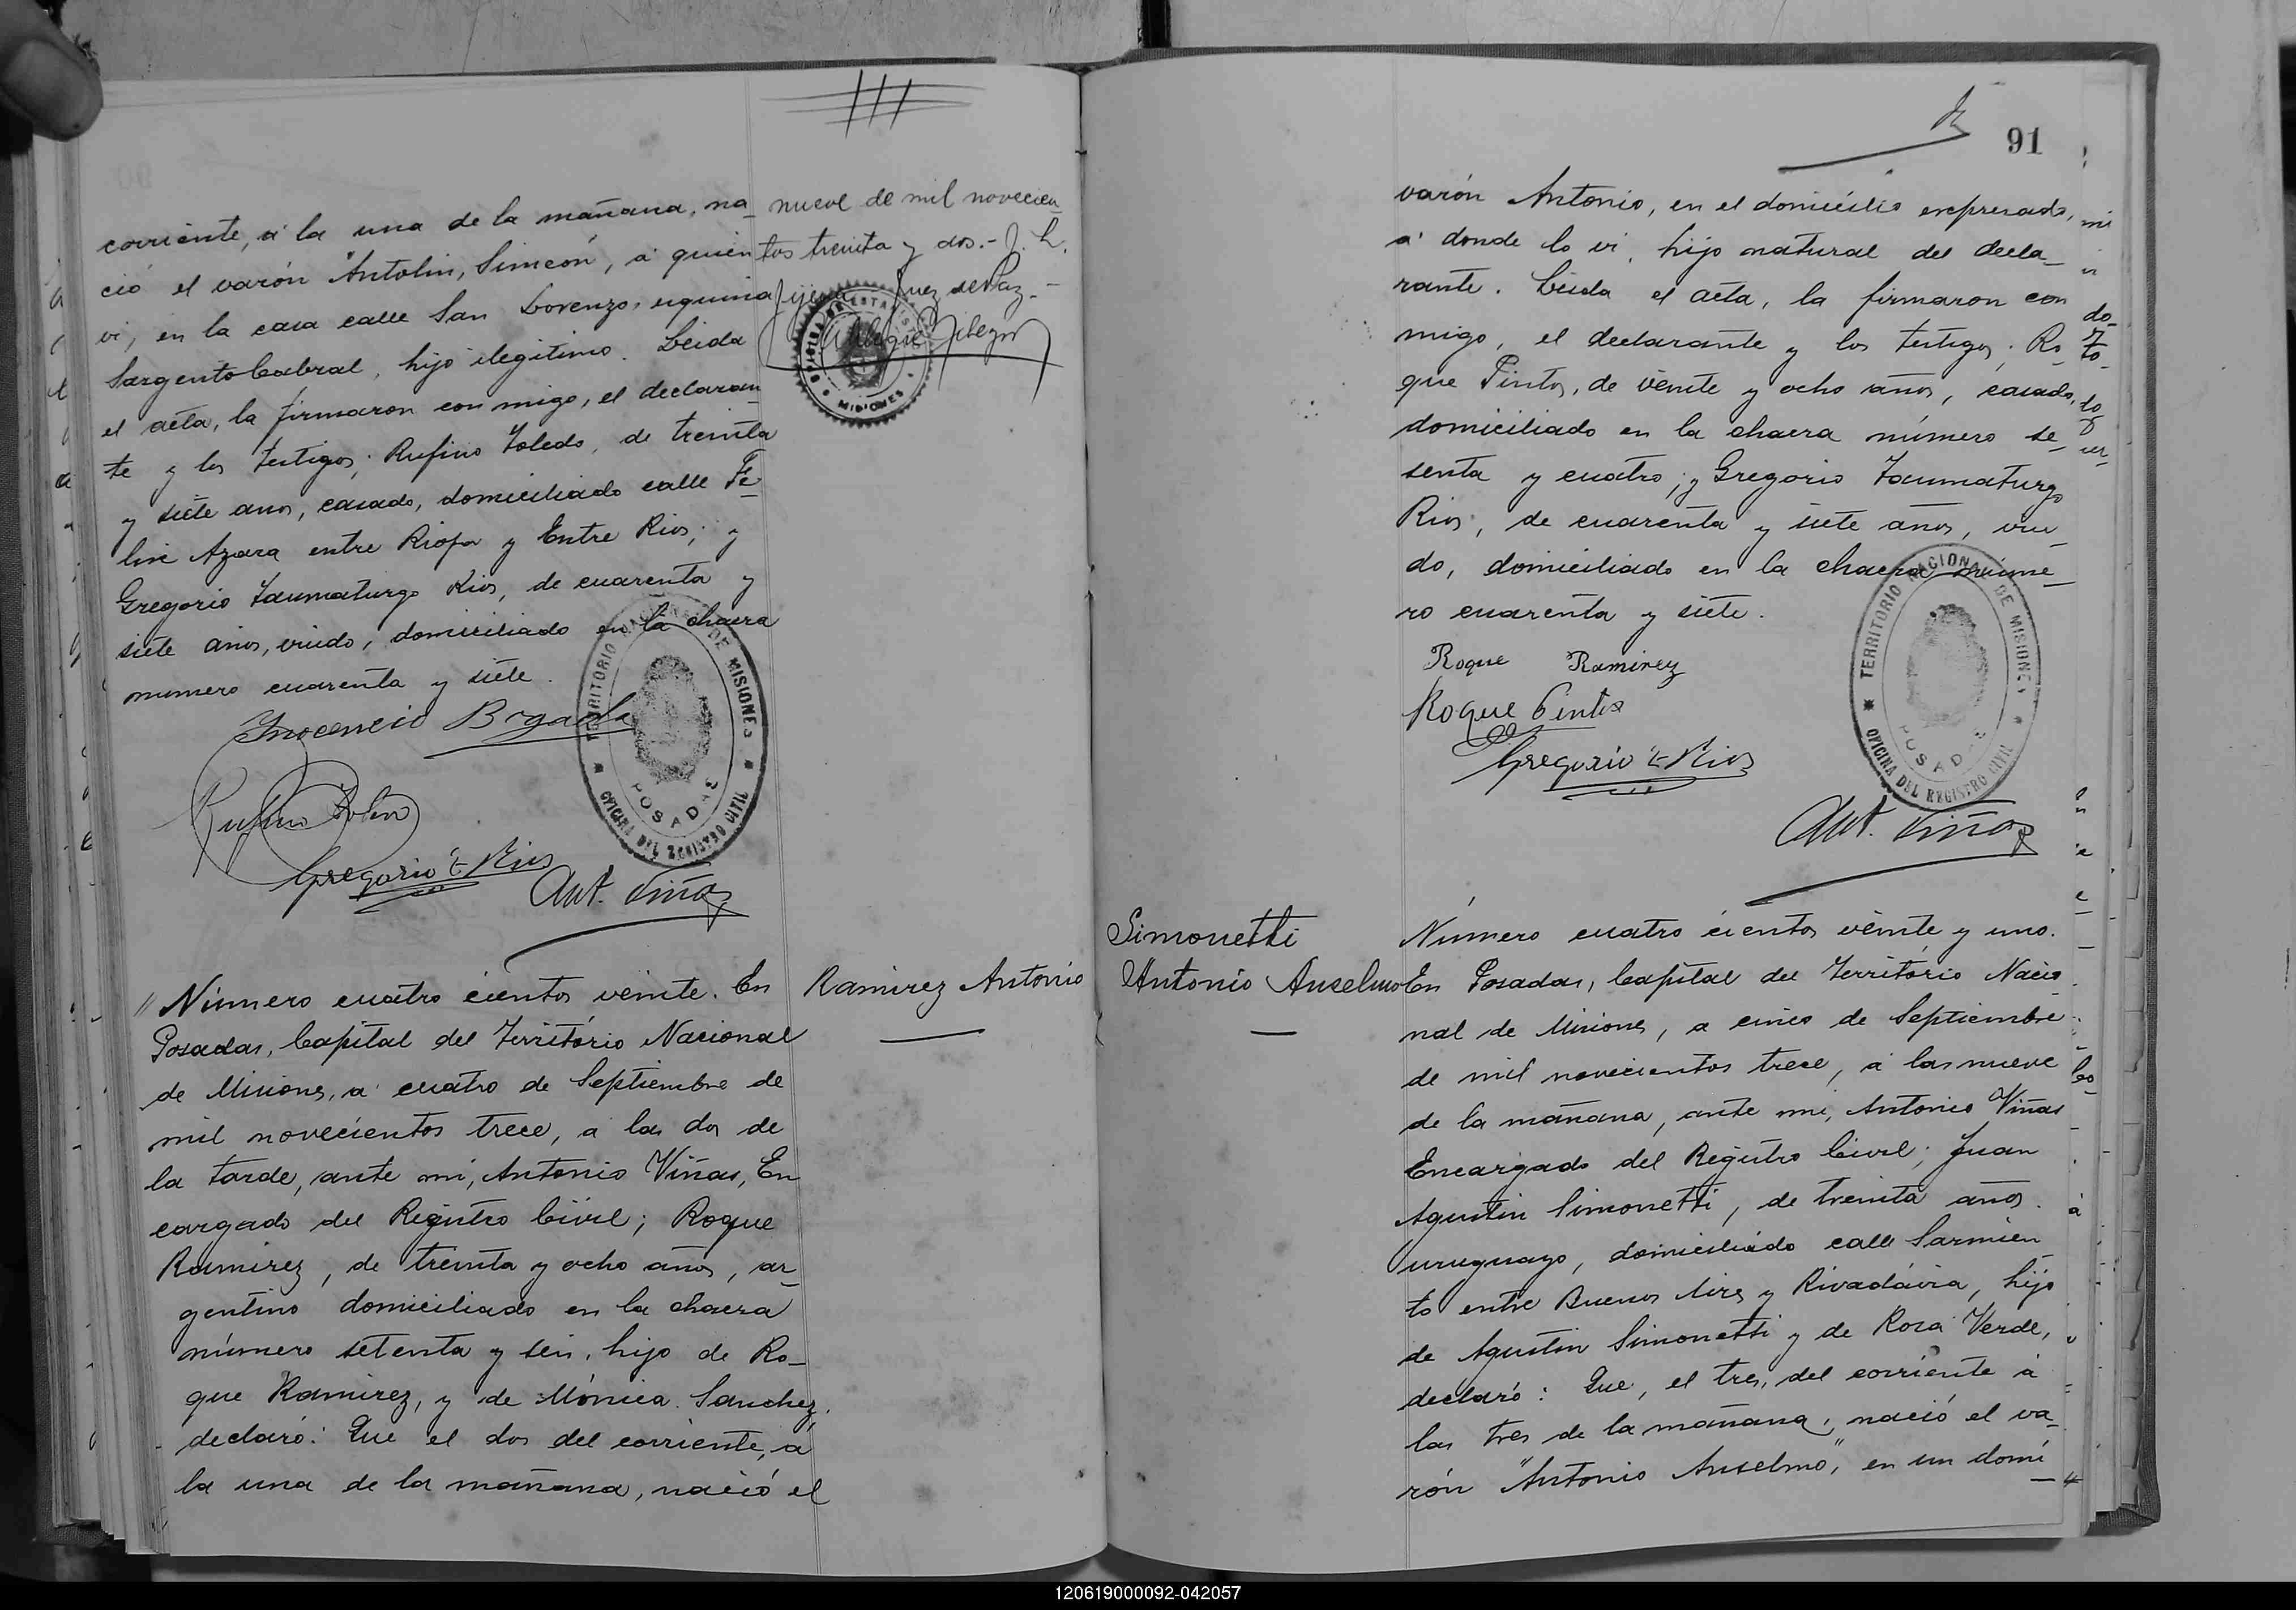 corriente, á la una de la mañana, na_
ció el varón "Antolin, Simeón, á quien
vi, en la casa calle San Lorenzo, esquina
Sargento Cabral, hijo ilegitimo. Leida
el acta, la firmaron con migo, el declaran
te y los testigos; Rufino Toledo, de treinta
y siete anos, casado, domiciliado calle Fe_
lix Azara entre Rioja y Entre Rios; y
Gregorio Taumaturgo Rios, de cuarenta y
siete años, viudo, domiciliado en la chacra
numero cuarenta y siete.
nueve de mil novecien_
tos treinta y dos.- J. L.
Juez de Paz.-
MISIONES
Inocencio
TERRITORIO NACIONAL DE MISIONES
POSADAS
OFICINA DEL REGISTRO CIVIL
Rufino Toledo
Gregorio T. Rios
Ant. Viñas
Número cuatro cientos veinte. En
Posadas, Capital del Territorio Nacional
de Misiones, a cuatro de Septiembre de
mil novecientos trece, á las dos de
la tarde, ante mi, Antonio Viñas, En
cargado del Registro Civil; Roque
Ramirez, de treinta y ocho años, ar_
gentino domiciliado en la chacra
número setenta y seis, hijo de Ro_
que Ramirez, y de Mónica Sanchez,
declaró: Que el dos del corriente, á
la una de la mañana, nació el
Ramirez Antonio
91
varón Antonio, en el domicilio expresado,
á donde lo vi, hijo natural del decla_
rante. Leida el acta, la firmaron con
migo, el declarante y los testigos; Ro_
que Pintos, de veinte y ocho años, casado,
domiciliado en la chacra número se_
senta y cuatro; y Gregorio Taumaturgo
Rios, de cuarenta y siete años, viu_
do, domiciliado en la chacra núme_
ro cuarenta y siete.
Roque Ramirez
Roque Pintos
Gregorio T. Rios
TERRITORIO NACIONAL DE MISIONES
POSADAS
OFICINA DEL REGISTRO CIVIL
Ant. Viñas
Simonetti
Antonio Anselmo
Número cuatro cientos veinte y uno.
En Posadas, Capital del Territorio Nacio_
nal de Misiones, a cinco de Septiembre
de mil novecientos trece, á las nueve
de la mañana, ante mi, Antonio Viñas
Encargado del Registro Civil; Juan
Agustin Simonetti, de treinta años.
uruguayo, domiciliado calle Sarmien_
to entre Buenos Aires y Rivadavia, hijo
de Agustin Simonetti y de Rosa Verde,
declaró: Que, el tres, del corriente á
las tres de la mañana, nació el va_
rón "Antonio Anselmo," en su domi_
120619000092-042057